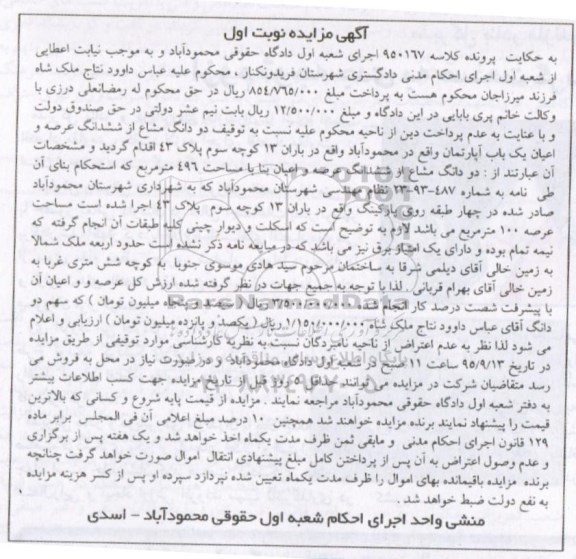 آگهی مزایده نوبت اول
به حکایت پرونده کلاسه ۹۵۰۱۶۷ اجرای شعبه اول دادگاه حقوقی محمودآباد و به موجب نیابت اعطایی
از شعبه اول اجرای احکام مدنی دادگستری شهرستان فریدونکنار . محکوم علیه عباس داوود نتاج ملک شاه
فرزند میرزاجان محکوم هست به پرداخت مبلغ ۸۵۴/۷۶۵/۰۰۰ ریال در حق محکوم له رمضانعلی درزی با
وکالت خانم پری بابایی در این دادگاه و مبلغ ۱۲/۵۰۰/۰۰۰ ریال بابت نیم عشر دولتی در حق صندوق دولت
و با عنایت به عدم پرداخت دین از ناحیه محکوم علیه نسبت به توقیف دو دانگ مشاع از ششدانگ عرصه و
اعیان یک باب آپارتمان واقع در محمودآباد واقع در باران ۱۳ کوچه سوم پلاک ۴۳ اقدام گردید و مشخصات
آن عبارتند از : دو دانگ مشاع از ششدانگ عرصه و اعیان بنا با مساحت ۴۹۶ مترمربع که استحکام بنای آن
طی نامه به شماره ۴۸۷-۹۳-۲۳ نظام مهندسی شهرستان محمودآباد که به شهرداری شهرستان محمودآباد
صادر شده در چهار طبقه روی پارکینگ واقع در باران ۱۳ کوچه سوم پلاک ۴۳ اجرا شده است مساحت
عرصه ۱۰۰ مترمربع می باشد لازم به توضیح است که اسکلت و دیوار چینی کلیه طبقات آن انجام گرفته که
نیمه تمام بوده و دارای یک امتیاز برق نیز می باشد که در مبایعه نامه ذکر نشده است حدود اربعه ملک شمالا
به زمین خالی آقای دیلمی شرقا به ساختمان مرحوم سید هادی موسوی جنوبا به کوچه شش متری غربا به
زمین خالی آقای بهرام قربانی . لذا با توجه به جمیع جهات در نظر گرفته شده ارزش کل عرصه و و اعیان آن
با پیشرفت شصت درصد کار انجام شده ۳/۴۵۰/۰۰۰/۰۰۰ ریال ( سیصد و پنجاه میلیون تومان ) که سهم دو
دانگ آقای عباس داوود نتاج ملک شاه ۱/۱۵۰/۰۰۰/۰۰۰ ریال ( یکصد و پانزده میلیون تومان ) ارزیابی و اعلام
می شود لذا نظر به عدم اعتراض از ناحیه نامبردگان نسبت به نظریه کارشناسی موارد توقیفی از طریق مزایده
در تاریخ ۹۵/۹/۱۳ ساعت ۱۱ صبح در شعبه اول دادگاه محمودآباد و در صورت نیاز در محل به فروش می
رسد متقاضیان شرکت در مزایده می توانند حداقل ۵ روز قبل از تاریخ مزایده جهت کسب اطلاعات بیشتر
به دفتر شعبه اول دادگاه حقوقی محمودآباد مراجعه نمایند . مزایده از قیمت پایه شروع و کسانی که بالاترین
قیمت را پیشنهاد نمایند برنده مزایده خواهند شد همچنین ۱۰ درصد مبلغ اعلامی آن فی المجلس برابر ماده
۱۲۹ قانون اجرای احکام مدنی و مابقی ثمن ظرف مدت یکماه اخذ خواهد شد و یک هفته پس از برگزاری
و عدم وصول اعتراض به آن پس از پرداختن کامل مبلغ پیشنهادی انتقال اموال صورت خواهد گرفت چنانچه
برنده مزایده باقیمانده بهای اموال را ظرف مدت یکماه تعیین شده نپردازد سپرده او پس از کسر هزینه مزایده
به نفع دولت ضبط خواهد شد.
منشی واحد اجرای احکام شعبه اول حقوقی محمودآباد - اسدی